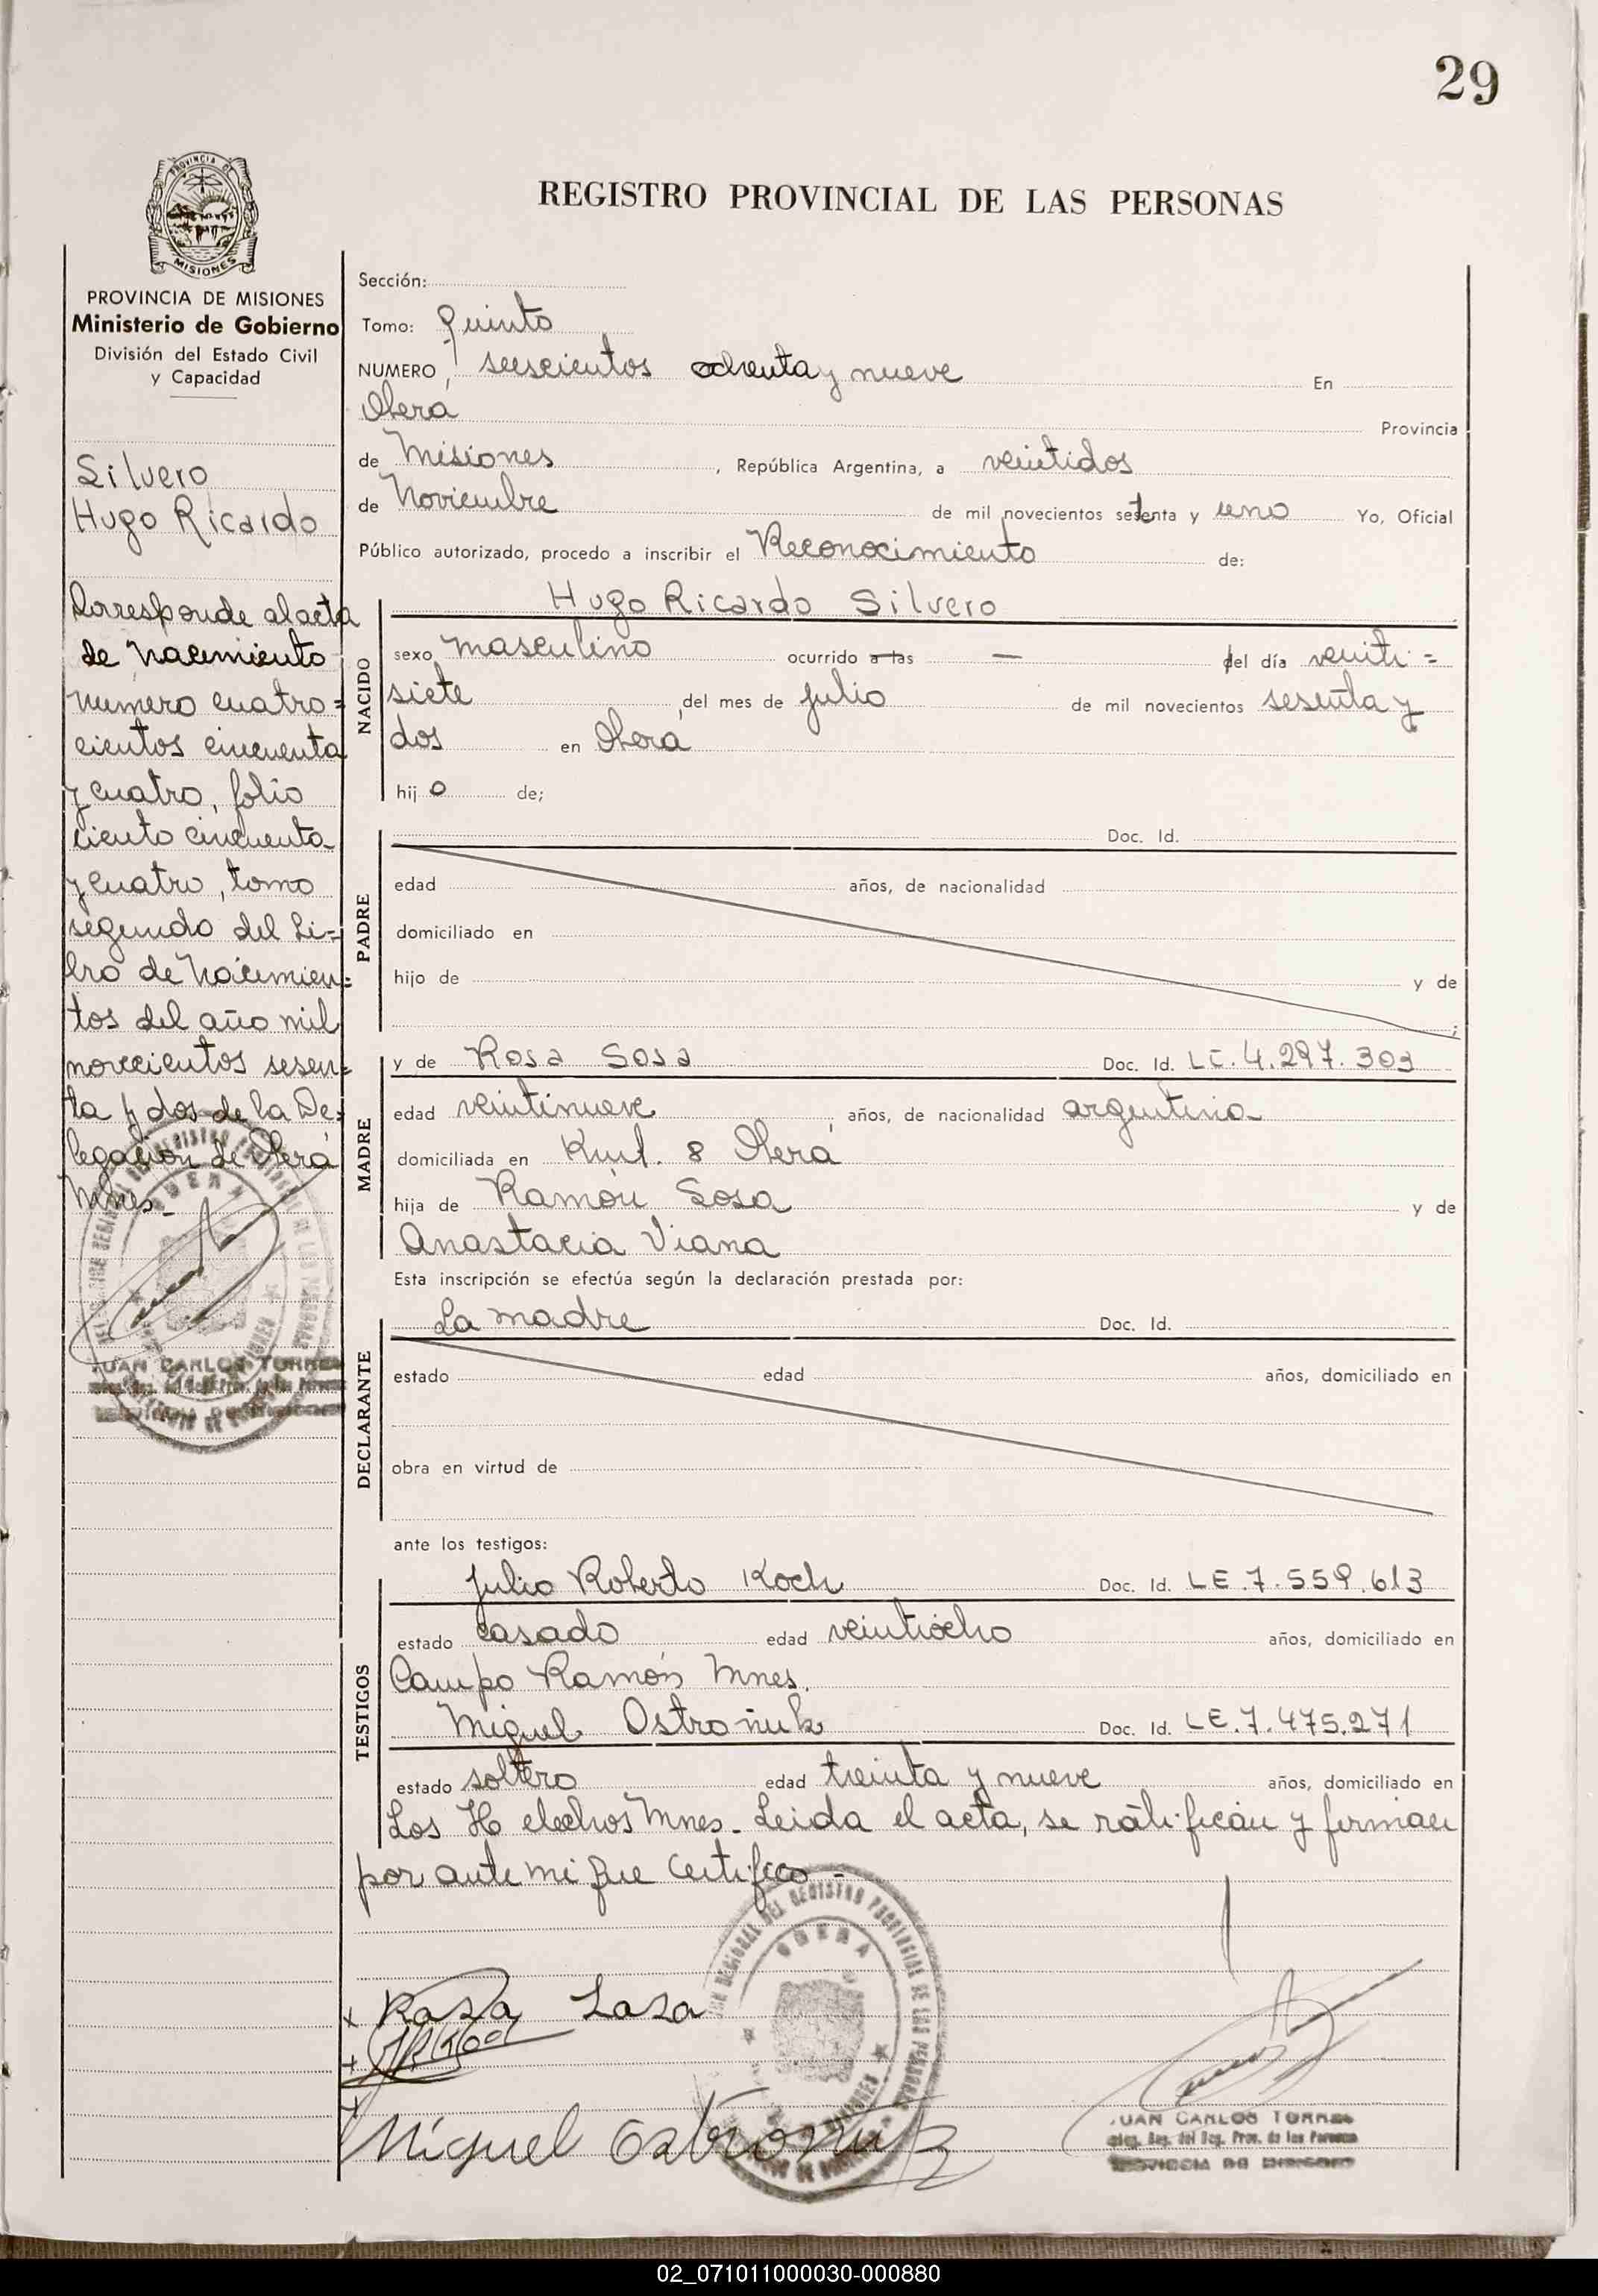 29
REGISTRO PROVINCIAL DE LAS PERSONAS
PROVINCIA DE
MISIONES
PROVINCIA DE MISIONES
Ministerio de Gobierno
División del Estado Civil
y Capacidad
Silvero
Hugo Ricardo
Corresponde al acta
de Nacimiento
numero cuatro=
cientos cincuenta
y cuatro, folio
ciento cincuenta
y cuatro, tomo
segundo del Li=
bro de Nacimien=
tos del año mil
novecientos sesen=
ta y dos de la De=
legación de Oberá
Mnes.-
JUAN CARLOS TORRES
Sección:
Tomo: Quinto
NUMERO, seiscientos ochenta y nueve En
Oberá Provincia
de Misiones, República Argentina, a veintidos
de Noviembre de mil novecientos setenta y uno Yo, Oficial
Público autorizado, procedo a inscribir el Reconocimiento de:
NACIDO
Hugo Ricardo Silvero
sexo masculino ocurrido a las — del día veinti=
siete del mes de julio de mil novecientos sesenta y
dos en Oberá
hijo de;
PADRE
Doc. Id.
edad años, de nacionalidad
domiciliado en
hijo de y de
;
MADRE
y de Rosa Sosa Doc. Id. LC. 4.297.303
edad veintinueve, años, de nacionalidad argentina
domiciliada en Kml. 8 Oberá
hija de Ramón Sosa y de
Anastacia Viana
Esta inscripción se efectúa según la declaración prestada por:
DECLARANTE
La madre Doc. Id.
estado edad años, domiciliado en
obra en virtud de
ante los testigos:
TESTIGOS
Julio Roberto Koch Doc. Id. LE.7.559.613
estado casado edad veintiocho años, domiciliado en
Campo Ramón Mnes.
Miguel Ostrañuk Doc. Id. LE.7.475.271
estado soltero edad treinta y nueve años, domiciliado en
Los Helechos Mnes. Leida el acta, se ratifican y firman
por ante mi que certifico.-
Rosa Sosa
Miguel Ostrañuk
OBERA
JUAN CARLOS TORRES
Deleg. Reg. del Reg. Prov. de las Personas
PROVINCIA DE MISIONES
02_071011000030-000880